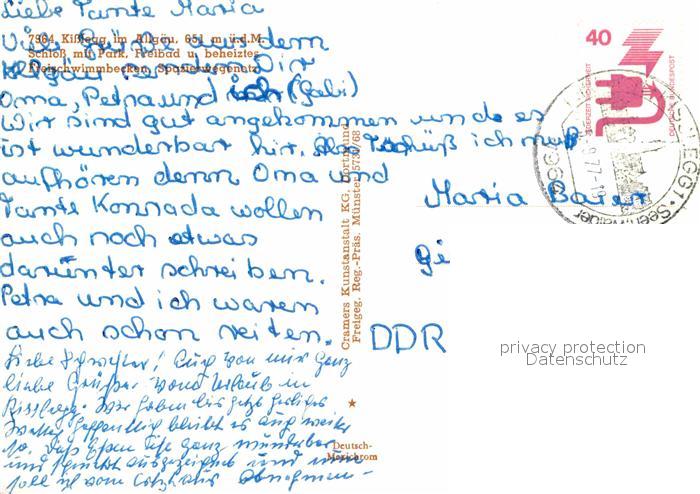 Liebe Tante Maria
7964 Kißlegg im Allgäu, 651 m ü.d.M.
Schloß mit Park, Freibad u beheiztes
Freischwimmbecken, Spazierwegenetz
Viele Grüße aus dem
Allgäu senden Dir
Oma, Petra und ich (Gabi)
Wir sind gut angekommen und es
ist wunderbar hir. Tschüß ich muß
aufhören denn Oma und
Tante Konrada wollen
auch noch etwas
darunter schreiben.
Petra und ich waren
auch schon reiten.
Liebe Schwester! Auch von mir ganz
liebe Grüße vom Urlaub in
Kisslegg. Wir haben bis jetzt
Wetter hoffentlich bleibt es auch weiter
so. Das Essen ist ganz wunderbar
und schmeckt ausgezeichnet und nun
soll ich vom abnehmen-
Cramers Kunstanstalt KG, Dortmund
Freigeg. Reg.-Präs. Münster 5739/68
Deutsch-
Merichrom
40
JEDERZEIT SICHERHEIT
DEUTSCHE BUNDESPOST
KISSLEGG 1
Maria Baier
Gi
DDR
privacy protection
Datenschutz